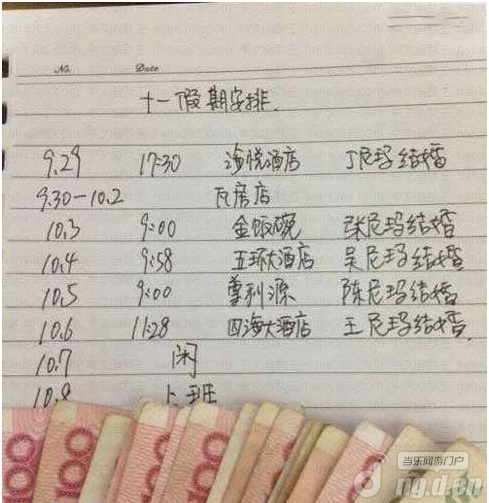 No.    Date
十一假期安排.
9.29 17:30 海悦酒店 丁尼玛结婚
9.30-10.2 瓦房店
10.3 9:00 金饭碗 张尼玛结婚
10.4 9:58 五环大酒店 吴尼玛结婚
10.5 9:00 尊利源 陈尼玛结婚
10.6 11:28 四海大酒店 王尼玛结婚.
10.7 闲
10.8 上班
100 100 100 100
当乐网游门户
ng.d.cn